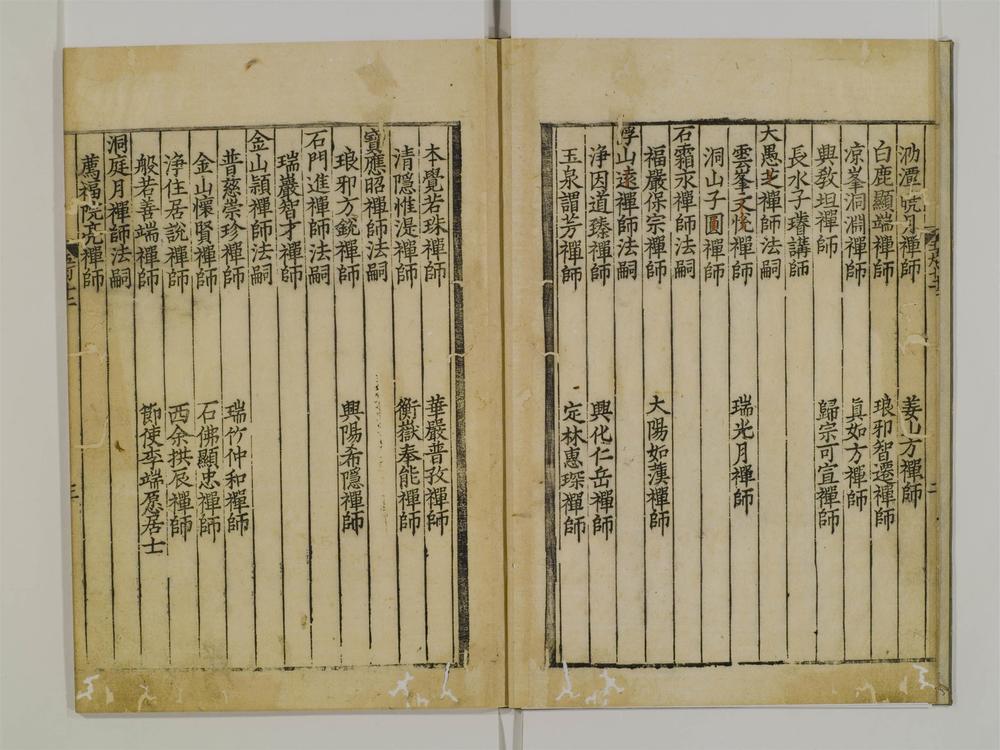 泐潭曉月禪師　姜山方禪師
白鹿顯端禪師　琅邪智遷禪師
凉峯洞淵禪師　眞如方禪師
興敎坦禪師　歸宗可宣禪師
長水子璿講師
大愚芝禪師法嗣
雲峯文悅禪師　瑞光月禪師
洞山子圓禪師
石霜永禪師法嗣
福嚴保宗禪師　大陽如漢禪師
浮山遠禪師法嗣
淨因道臻禪師　興化仁岳禪師
玉泉謂芳禪師　定林惠琛禪師
本覺若珠禪師　華嚴普孜禪師
清隱惟湜禪師　衡嶽奉能禪師
寶應昭禪師法嗣
琅邪方銳禪師　興陽希隱禪師
石門進禪師法嗣
瑞巖智才禪師
金山頴禪師法嗣
普慈崇珍禪師　瑞竹仲和禪師
金山懷賢禪師　石佛顯忠禪師
淨住居說禪師　西余拱辰禪師
般若善端禪師　節使李端愿居士
洞庭月禪師法嗣
薦福院亮禪師